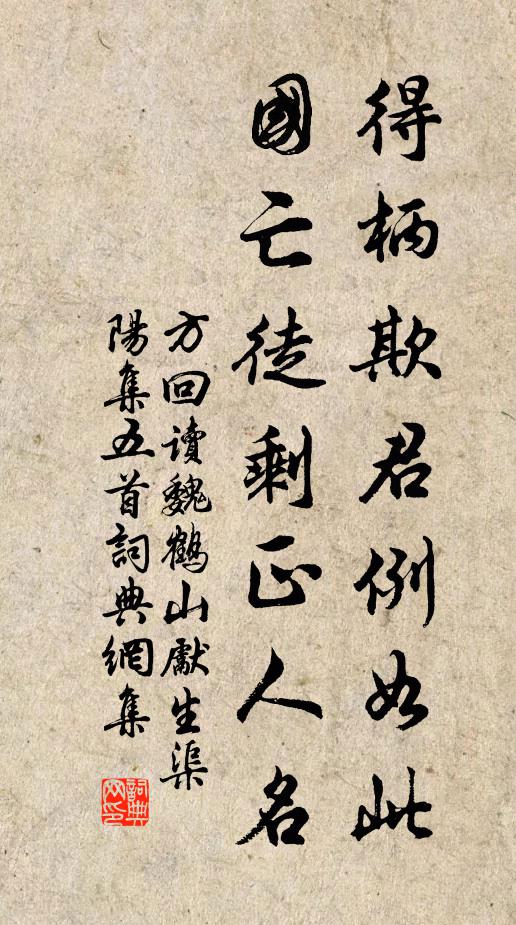 得柄欺君例如此
國亡徒剩正人名
方回讀魏鶴山獻生渠
陽集五首詞典網集
詞典网印